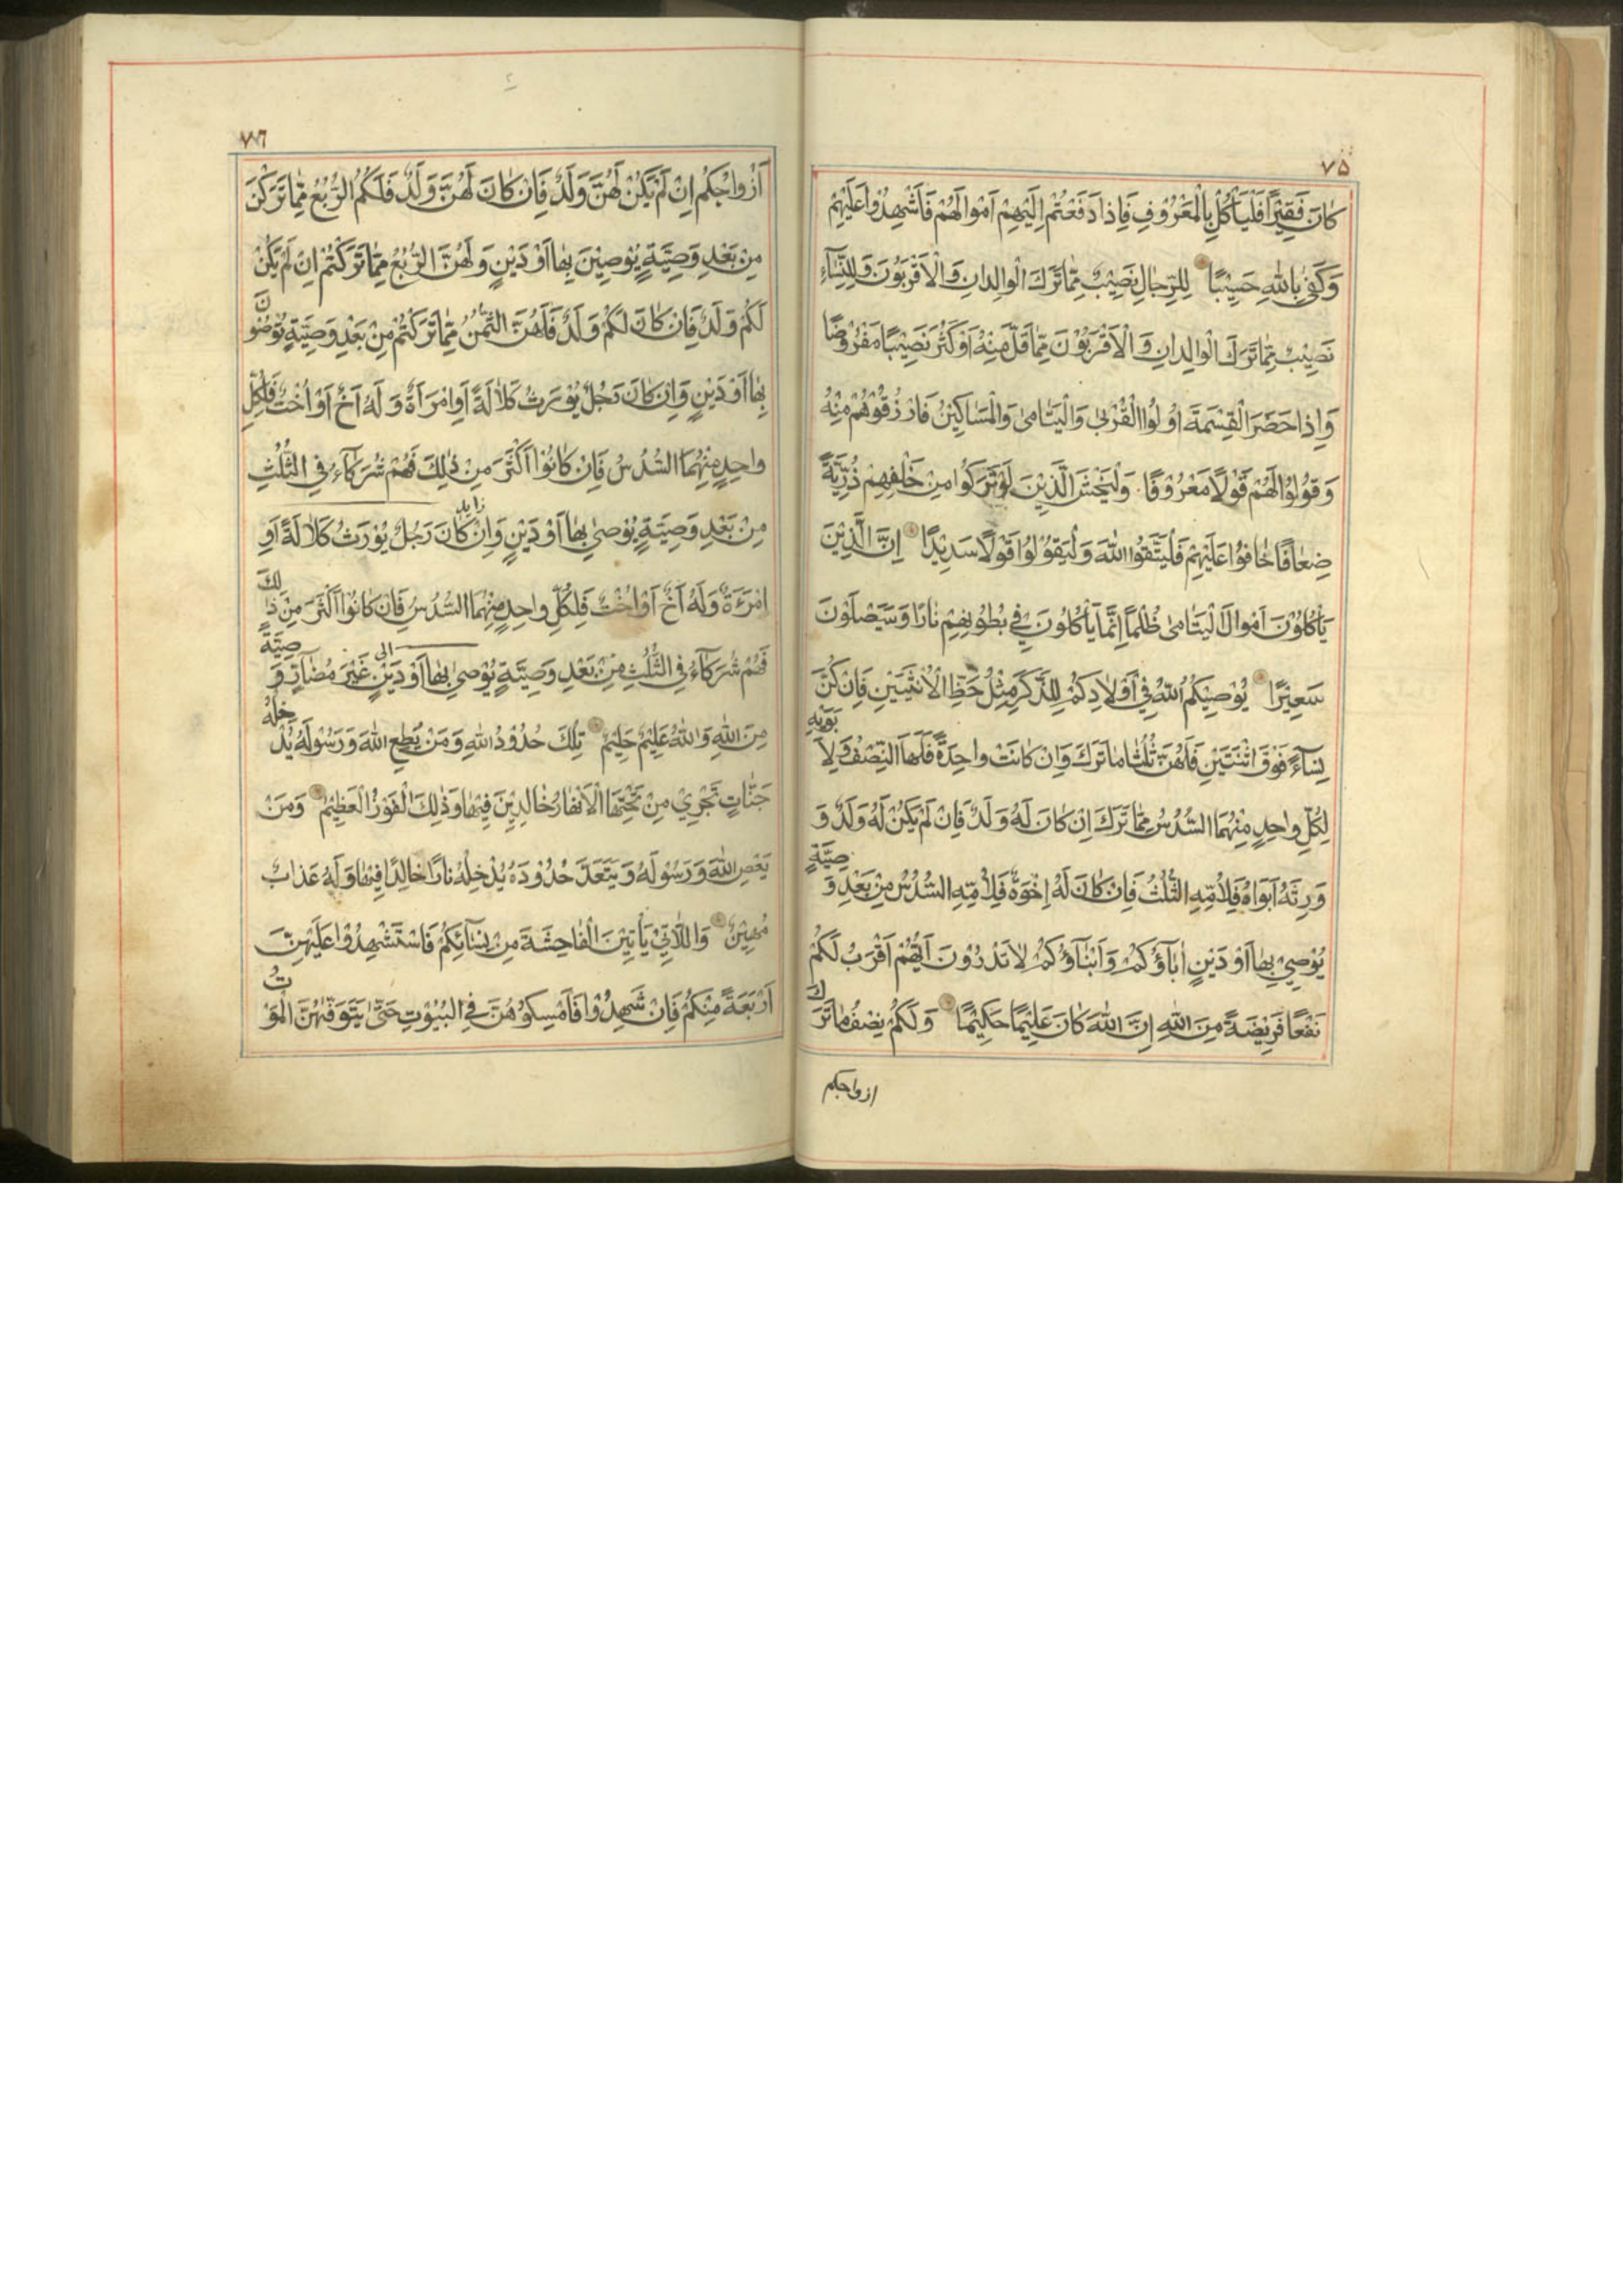 ٧٥
كٰانَ فَقِيْرًا فَلْيَأْكُلْ بِالْمَعْرُوْفِ فَاِذٰا دَفَعْتُمْ اِلَيْهِمْ اَمْوٰالَهُمْ فَاَشْهِدُوْا عَلَيْهِمْ
وَكَفٰى بِاللّٰهِ حَسِيْبًا لِلرِّجٰالِ نَصِيْبٌ مِمّٰا تَرَكَ الْوٰالِدٰانِ وَالْاَقْرَبُوْنَ وَلِلنِّسٰآءِ
نَصِيْبٌ مِمّٰا تَرَكَ الْوٰالِدٰانِ وَالْاَقْرَبُوْنَ مِمّٰا قَلَّ مِنْهُ اَوْ كَثُرَ نَصِيْبًا مَفْرُوْضًا
وَاِذٰا حَضَرَ الْقِسْمَةَ اُولُوا الْقُرْبٰى وَالْيَتٰامٰى وَالْمَسٰاكِيْنُ فَارْزُقُوْهُمْ مِنْهُ
وَقُوْلُوْا لَهُمْ قَوْلًا مَعْرُوْفًا وَلْيَخْشَ الَّذِيْنَ لَوْ تَرَكُوْا مِنْ خَلْفِهِمْ ذُرِّيَّةً
ضِعٰافًا خٰافُوْا عَلَيْهِمْ فَلْيَتَّقُوا اللّٰهَ وَلْيَقُوْلُوْا قَوْلًا سَدِيْدًا اِنَّ الَّذِيْنَ
يَأْكُلُوْنَ اَمْوٰالَ الْيَتٰامٰى ظُلْمًا اِنَّمٰا يَأْكُلُوْنَ فِيْ بُطُوْنِهِمْ نٰارًا وَسَيَصْلَوْنَ
سَعِيْرًا يُوْصِيْكُمُ اللّٰهُ فِيْ اَوْلٰادِكُمْ لِلذَّكَرِ مِثْلُ حَظِّ الْاُنْثَيَيْنِ فَاِنْ كُنَّ
نِسٰآءً فَوْقَ اثْنَتَيْنِ فَلَهُنَّ ثُلُثٰا مٰا تَرَكَ وَاِنْ كٰانَتْ وٰاحِدَةً فَلَهَا النِّصْفُ وَلِاَبَوَيْهِ
لِكُلِّ وٰاحِدٍ مِنْهُمَا السُّدُسُ مِمّٰا تَرَكَ اِنْ كٰانَ لَهُ وَلَدٌ فَاِنْ لَمْ يَكُنْ لَهُ وَلَدٌ وَ
وَرِثَهُ اَبَوٰاهُ فَلِاُمِّهِ الثُّلُثُ فَاِنْ كٰانَ لَهُ اِخْوَةٌ فَلِاُمِّهِ السُّدُسُ مِنْ بَعْدِ وَصِيَّةٍ
يُوْصِيْ بِهٰا اَوْ دَيْنٍ اٰبٰآؤُكُمْ وَاَبْنٰآؤُكُمْ لٰا تَدْرُوْنَ اَيُّهُمْ اَقْرَبُ لَكُمْ
نَفْعًا فَرِيْضَةً مِنَ اللّٰهِ اِنَّ اللّٰهَ كٰانَ عَلِيْمًا حَكِيْمًا وَلَكُمْ نِصْفُ مٰا تَرَكَ
ازواجكم
٧٦
اَزْوٰاجُكُمْ اِنْ لَمْ يَكُنْ لَهُنَّ وَلَدٌ فَاِنْ كٰانَ لَهُنَّ وَلَدٌ فَلَكُمُ الرُّبُعُ مِمّٰا تَرَكْنَ
مِنْ بَعْدِ وَصِيَّةٍ يُوْصِيْنَ بِهٰا اَوْ دَيْنٍ وَلَهُنَّ الرُّبُعُ مِمّٰا تَرَكْتُمْ اِنْ لَمْ يَكُنْ
لَكُمْ وَلَدٌ فَاِنْ كٰانَ لَكُمْ وَلَدٌ فَلَهُنَّ الثُّمُنُ مِمّٰا تَرَكْتُمْ مِنْ بَعْدِ وَصِيَّةٍ تُوْصُوْنَ
بِهٰا اَوْ دَيْنٍ وَاِنْ كٰانَ رَجُلٌ يُوْرَثُ كَلٰالَةً اَوِ امْرَاَةٌ وَلَهُ اَخٌ اَوْ اُخْتٌ فَلِكُلِّ
وٰاحِدٍ مِنْهُمَا السُّدُسُ فَاِنْ كٰانُوْا اَكْثَرَ مِنْ ذٰلِكَ فَهُمْ شُرَكٰآءُ فِي الثُّلُثِ
زايد
مِنْ بَعْدِ وَصِيَّةٍ يُوْصٰى بِهٰا اَوْ دَيْنٍ وَاِنْ كٰانَ رَجُلٌ يُوْرَثُ كَلٰالَةً اَوِ
امْرَءَةٌ وَلَهُ اَخٌ اَوْ اُخْتٌ فَلِكُلِّ وٰاحِدٍ مِنْهُمَا السُّدُسُ فَاِنْ كٰانُوْا اَكْثَرَ مِنْ ذٰلِكَ
الى
فَهُمْ شُرَكٰآءُ فِي الثُّلُثِ مِنْ بَعْدِ وَصِيَّةٍ يُوْصٰى بِهٰا اَوْ دَيْنٍ غَيْرَ مُضٰآرٍّ وَصِيَّةً
مِنَ اللّٰهِ وَاللّٰهُ عَلِيْمٌ حَلِيْمٌ تِلْكَ حُدُوْدُ اللّٰهِ وَمَنْ يُطِعِ اللّٰهَ وَرَسُوْلَهُ يُدْخِلْهُ
جَنّٰاتٍ تَجْرِيْ مِنْ تَحْتِهَا الْاَنْهٰارُ خٰالِدِيْنَ فِيْهٰا وَذٰلِكَ الْفَوْزُ الْعَظِيْمُ وَمَنْ
يَعْصِ اللّٰهَ وَرَسُوْلَهُ وَيَتَعَدَّ حُدُوْدَهُ يُدْخِلْهُ نٰارًا خٰالِدًا فِيْهٰا وَلَهُ عَذٰابٌ
مُهِيْنٌ وَاللّٰاتِيْ يَأْتِيْنَ الْفٰاحِشَةَ مِنْ نِسٰآئِكُمْ فَاسْتَشْهِدُوْا عَلَيْهِنَّ
اَرْبَعَةً مِنْكُمْ فَاِنْ شَهِدُوْا فَاَمْسِكُوْهُنَّ فِي الْبُيُوْتِ حَتّٰى يَتَوَفّٰهُنَّ الْمَوْتُ